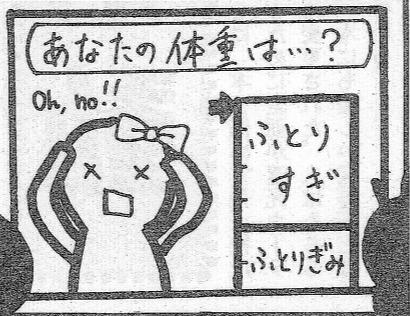 あなたの体重は…?
Oh, no!!
ふとり
すぎ
ふとりぎみ